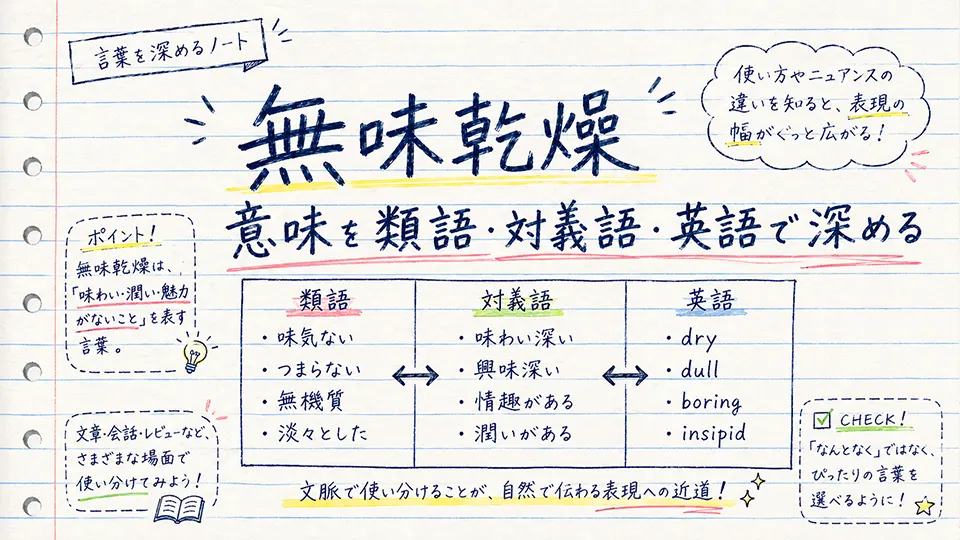 言葉を深めるノート
無味乾燥
使い方やニュアンスの
違いを知ると、表現の
幅がぐっと広がる！
意味を類語・対義語・英語で深める
ポイント！
無味乾燥は、
「味わい・潤い・魅力
がないこと」を表す
言葉。
類語
・味気ない
・つまらない
・無機質
・淡々とした
対義語
・味わい深い
・興味深い
・情趣がある
・潤いがある
英語
・dry
・dull
・boring
・insipid
文章・会話・レビューなど、
さまざまな場面で
使い分けてみよう！
CHECK！
「なんとなく」ではなく、
ぴったりの言葉を
選べるように！
文脈で使い分けることが、自然で伝わる表現への近道！